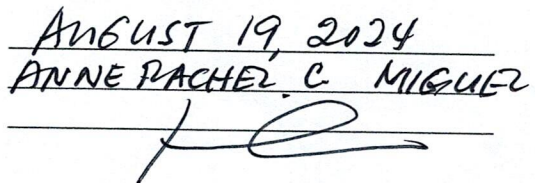 AUGUST 19, 2024
ANNE RACHEL C. MIGUEL